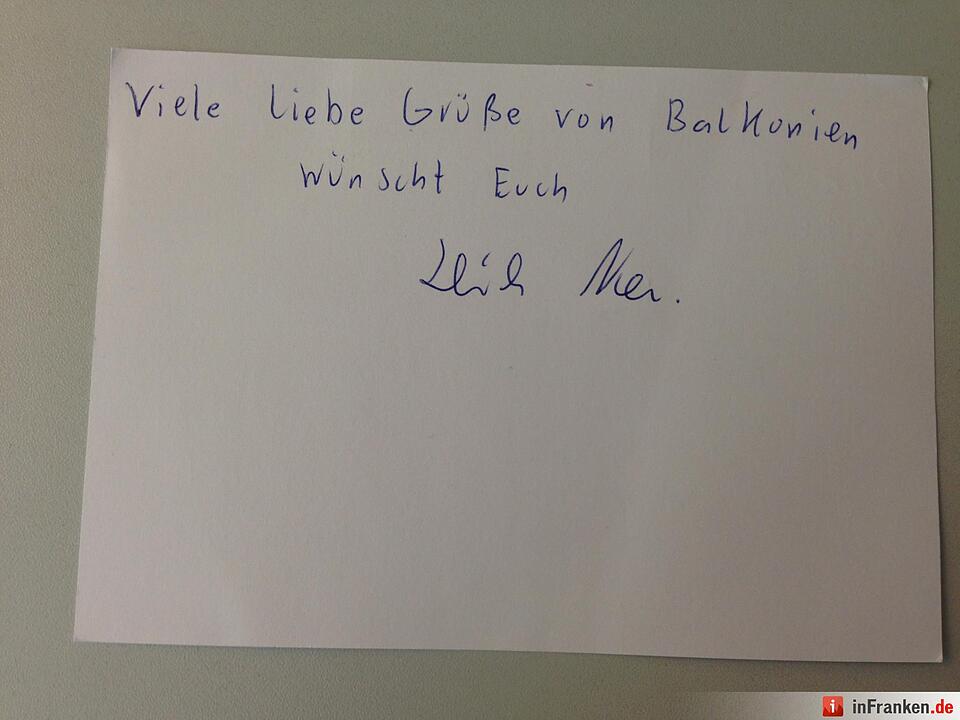 Viele liebe Grüße von Balkonien
wünscht Euch
inFranken.de